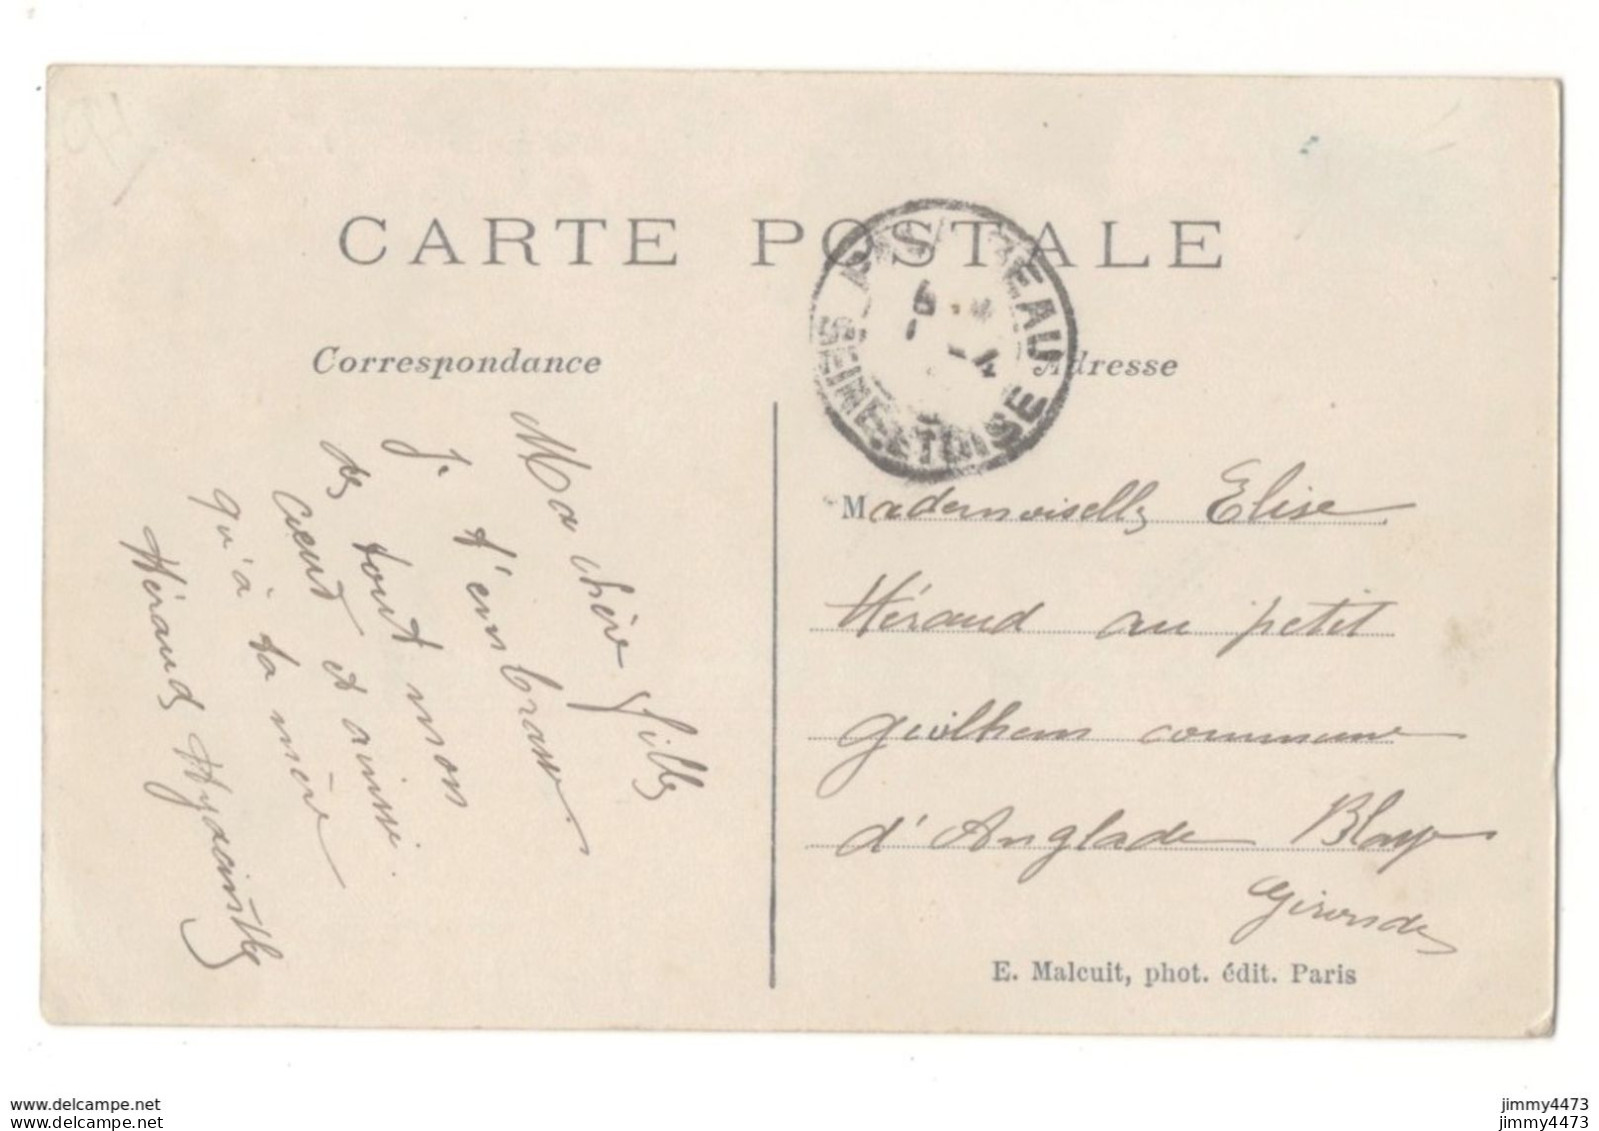 CARTE POSTALE
Correspondance
Adresse
EAU
SEINE-ET-OISE
Ma chère fille
Je t'embrasse
de tout mon
cœur et ainsi
qu'à ta mère
Héraud Hyacinthe
Mademoiselle Elise
Héraud au petit
Guilhem commune
d'Anglade Blaye
Gironde
E. Malcuit, phot. édit. Paris
www.delcampe.net
www.delcampe.net
jimmy4473
jimmy4473